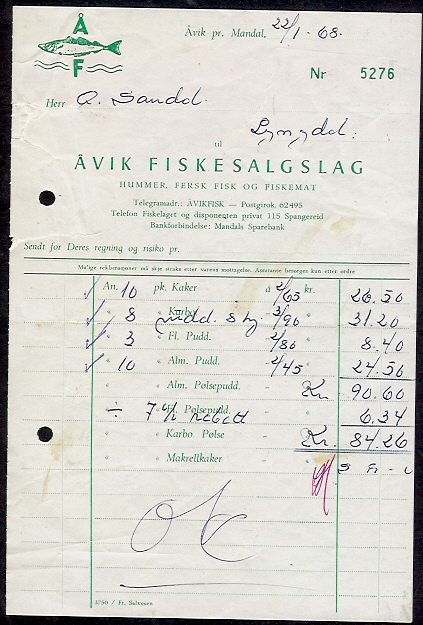 Å
F
Åvik pr. Mandal, 22/1-68.
Nr 5276
Herr A. Sandd.
Lyngdd:
til
ÅVIK FISKESALGSLAG
HUMMER, FERSK FISK OG FISKEMAT
Telegramadr.: ÅVIKFISK — Postgirok. 62495
Telefon Fiskelaget og disponenten privat 115 Spangereid
Bankforbindelse: Mandals Sparebank
Sendt for Deres regning og risiko pr.
Mulige reklamasjoner må skje straks etter varens mottagelse. Assuranse besørges kun etter ordre
An. 10 pk. Kaker à 2/65 kr. 26.50
" 8 " Karbo - 3/90 " 31.20
" 3 " Fl. Pudd. - 2/80 " 8.40
" 10 " Alm. Pudd. - 2/45 " 24.50
" " Alm. Pølsepudd. - Kr. 90.60
÷ 7% rabatt " Fl. Pølsepudd. - " 6.34
" " Karbo Pølse - Kr. 84.26
" " Makrellkaker - "
OK
3750 / Fr. Salvesen